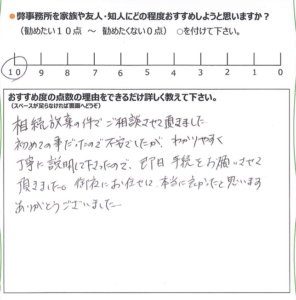 ●弊事務所を家族や友人・知人にどの程度おすすめしようと思いますか？
（勧めたい10点 ～ 勧めたくない0点） ○を付けて下さい。
10 9 8 7 6 5 4 3 2 1 0
おすすめ度の点数の理由をできるだけ詳しく教えて下さい。
（スペースが足りなければ裏面へどうぞ）
相続放棄の件でご相談させて頂きました
初めての事だったので不安でしたが、わかりやすく
丁寧に説明して下さったので、即日手続をお願いさせて
頂きました。 にお任せし 本当に良かったと思います
ありがとうございました